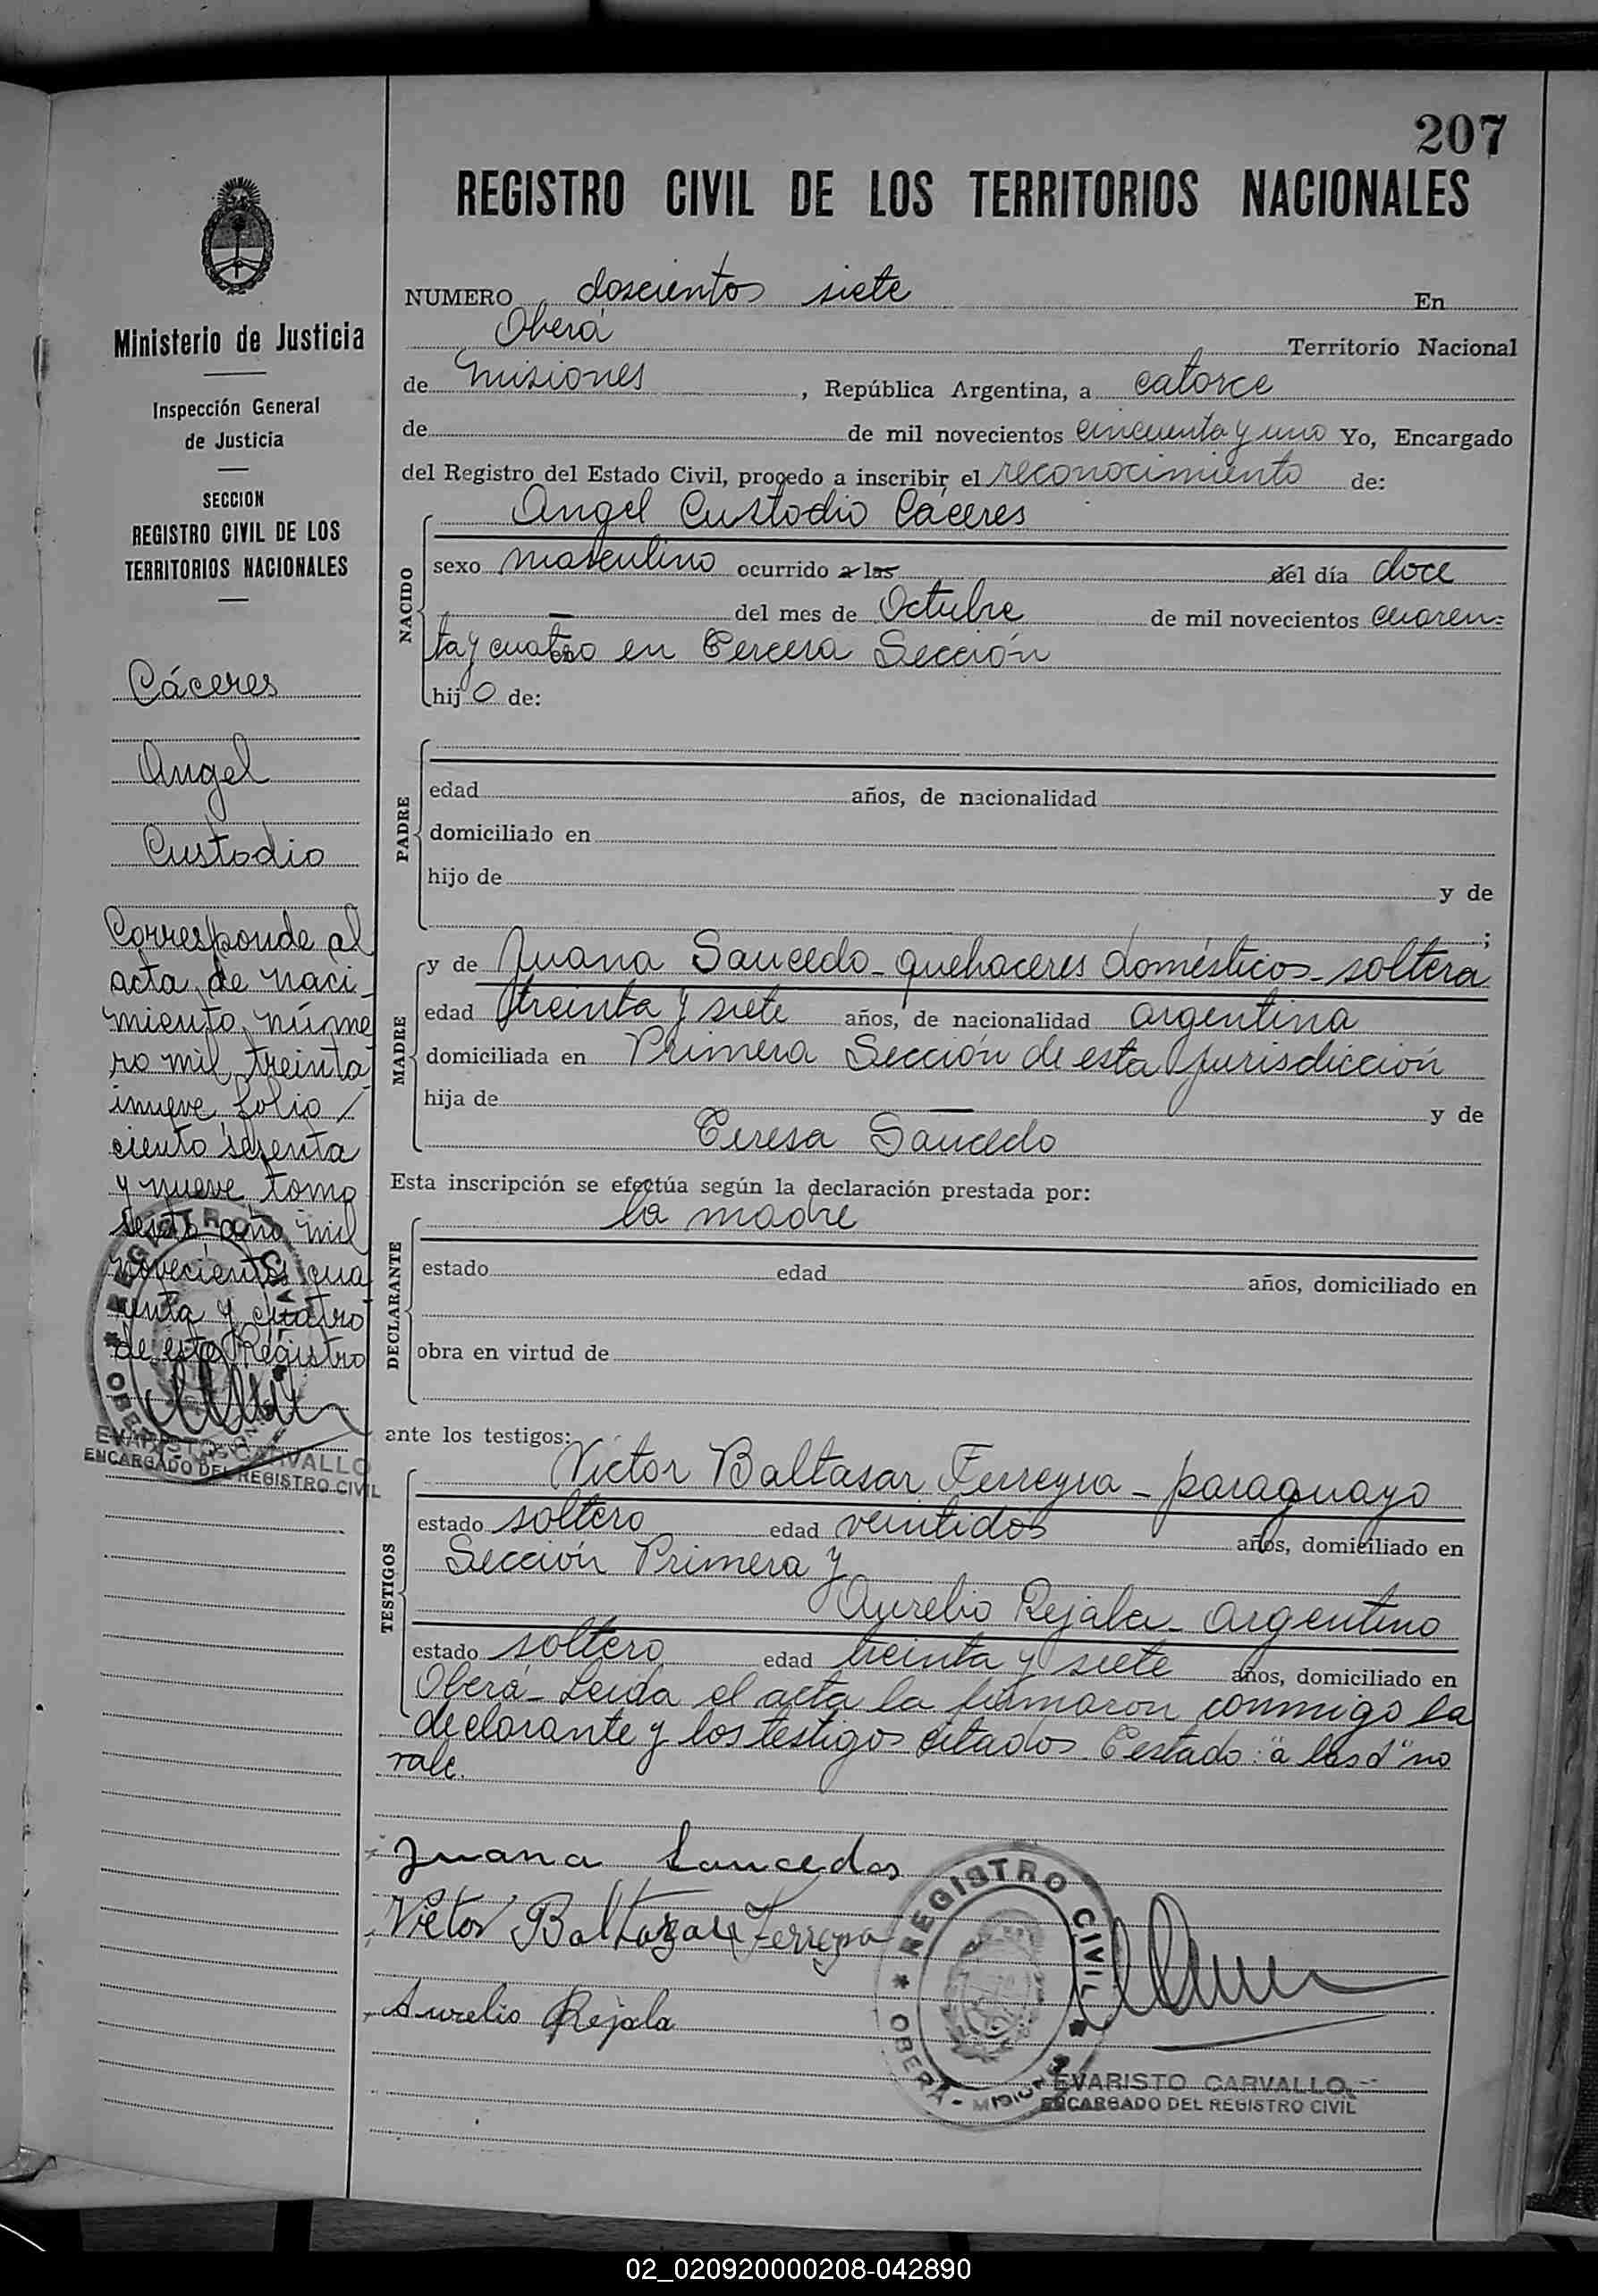 207
REGISTRO CIVIL DE LOS TERRITORIOS NACIONALES
NUMERO doscientos siete En
Oberá Territorio Nacional
de Misiones, República Argentina, a catorce
de de mil novecientos cincuenta y uno Yo, Encargado
del Registro del Estado Civil, procedo a inscribir el reconocimiento de:
NACIDO
Angel Custodio Cáceres
sexo masculino ocurrido a las del día doce
— del mes de Octubre de mil novecientos cuaren=
ta y cuatro en Tercera Sección
hijo de:
PADRE
edad años, de nacionalidad
domiciliado en
hijo de y de
;
MADRE
y de Juana Saucedo - quehaceres domésticos - soltera
edad treinta y siete años, de nacionalidad argentina
domiciliada en Primera Sección de esta jurisdicción
hija de — y de
Teresa Saucedo
Esta inscripción se efectúa según la declaración prestada por:
DECLARANTE
la madre
estado edad años, domiciliado en
obra en virtud de
ante los testigos:
TESTIGOS
Victor Baltasar Ferreyra - paraguayo
estado soltero edad veintidos años, domiciliado en
Sección Primera y
Aurelio Rejala - argentino
estado soltero edad treinta y siete años, domiciliado en
Oberá - Leida el acta la firmaron conmigo la
declarante y los testigos citados Testado: "a las d" no
vale.
Juana Saucedos
Victor Baltazar Ferreyra
Aurelio Rejala
REGISTRO CIVIL
OBERÁ - MISIONES
EVARISTO CARVALLO
ENCARGADO DEL REGISTRO CIVIL
Ministerio de Justicia
Inspección General
de Justicia
SECCION
REGISTRO CIVIL DE LOS
TERRITORIOS NACIONALES
Cáceres
Angel
Custodio
Corresponde al
acta de naci-
miento núme
ro mil treinta
inueve folio /
ciento setenta
y nueve tomo
sexto año mil
novecientos cua
renta y cuatro
de este Registro
REGISTRO CIVIL
OBERÁ - MISIONES
EVARISTO CARVALLO
ENCARGADO DEL REGISTRO CIVIL
02_020920000208-042890